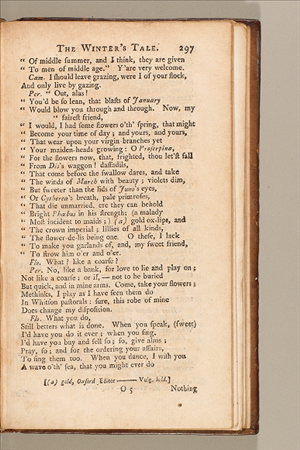 The Winter's Tale. 297
" Of middle summer, and I think, they are given
" To men of middle age." Y'are very welcome.
Cam. I should leave grazing, were I of your flock,
And only live by gazing.
Per. " Out, alas!
" You'd be so lean, that blasts of January
" Would blow you through and through. Now, my
" fairest friend,
" I would, I had some flowers o'th' spring, that might
" Become your time of day; and yours, and yours,
" That wear upon your virgin-branches yet
" Your maiden-heads growing: O Proserpina,
" For the flowers now, that, frighted, thou let'st fall
" From Dis's waggon! daffadils,
" That come before the swallow dares, and take
" The winds of March with beauty; violets dim,
" But sweeter than the lids of Juno's eyes,
" Or Cytherea's breath, pale primroses,
" That die unmarried, ere they can behold
" Bright Phœbus in his strength; (a malady
" Most incident to maids;) (a) gold oxlips, and
" The crown imperial; lillies of all kinds,
" The flower-de-lis being one. O these, I lack
" To make you garlands of, and, my sweet friend,
" To strow him o'er and o'er.
Flo. What? like a coarse?
Per. No, like a bank, for love to lie and play on;
Not like a coarse; or if, — not to be buried
But quick, and in mine arms. Come, take your flowers;
Methinks, I play as I have seen them do
In Whitson pastorals: sure, this robe of mine
Does change my disposition.
Flo. What you do,
Still betters what is done. When you speak, (sweet)
I'd have you do it ever; when you sing,
I'd have you buy and sell so; so, give alms;
Pray, so; and for the ordering your affairs,
To sing them too. When you dance, I wish you
A wave o'th' sea, that you might ever do
[(a) gold, Oxford Editor —— Vulg. bold.]
O 5 Nothing